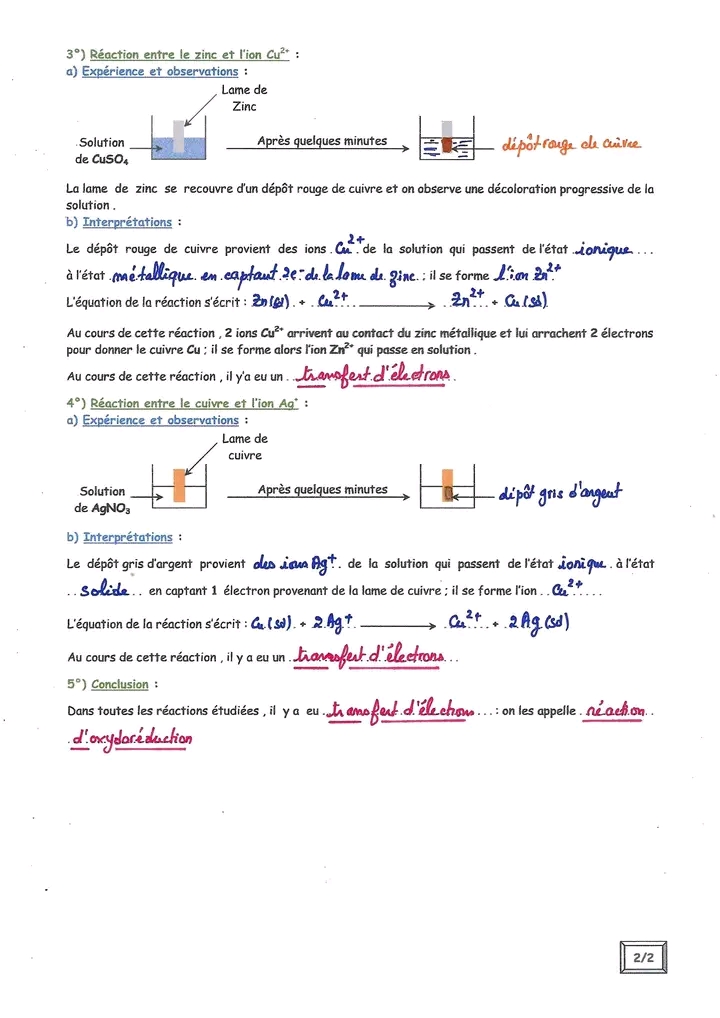 3°) Réaction entre le zinc et l'ion Cu²⁺ :
a) Expérience et observations :
Lame de
Zinc
Solution
de CuSO₄
Après quelques minutes
dépôt rouge de cuivre
La lame de zinc se recouvre d'un dépôt rouge de cuivre et on observe une décoloration progressive de la
solution .
b) Interprétations :
Le dépôt rouge de cuivre provient des ions .Cu²⁺. de la solution qui passent de l'état .ionique...
à l'état .métallique en captant 2e⁻ de la lame de zinc. ; il se forme l'ion Zn²⁺
L'équation de la réaction s'écrit : Zn(sd) + Cu²⁺ → Zn²⁺ + Cu(sd)
Au cours de cette réaction , 2 ions Cu²⁺ arrivent au contact du zinc métallique et lui arrachent 2 électrons
pour donner le cuivre Cu ; il se forme alors l'ion Zn²⁺ qui passe en solution .
Au cours de cette réaction , il y'a eu un ..transfert d'électrons.
4°) Réaction entre le cuivre et l'ion Ag⁺ :
a) Expérience et observations :
Lame de
cuivre
Solution
de AgNO₃
Après quelques minutes
dépôt gris d'argent
b) Interprétations :
Le dépôt gris d'argent provient des ions Ag⁺. de la solution qui passent de l'état .ionique. à l'état
..solide... en captant 1 électron provenant de la lame de cuivre ; il se forme l'ion ..Cu²⁺.....
L'équation de la réaction s'écrit : Cu(sd) + 2Ag⁺ → Cu²⁺ + 2Ag(sd)
Au cours de cette réaction , il y a eu un .transfert d'électrons...
5°) Conclusion :
Dans toutes les réactions étudiées , il y a eu .transfert d'électrons...: on les appelle .réaction..
.d'oxydoréduction
2/2